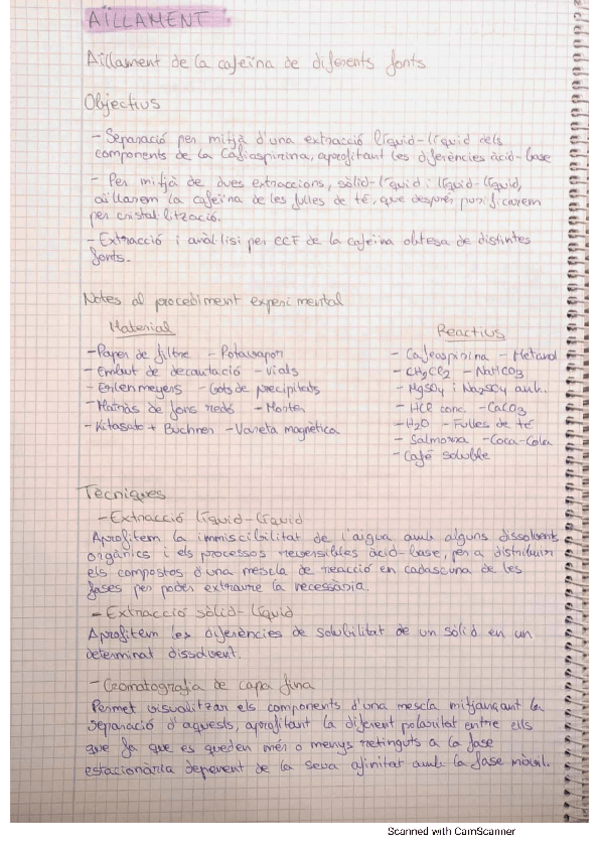 AÏLLAMENT
Aïllament de la cafeïna de diferents fonts
Objectius
- Separació per mitjà d'una extracció líquid-líquid dels
components de la Cafiaspirina, aprofitant les diferències àcid-base
- Per mitjà de dues extraccions, sòlid-líquid i líquid-líquid,
aïllarem la cafeïna de les fulles de té, que després purificarem
per cristal·lització.
- Extracció i anàlisi per CCF de la cafeïna obtesa de distintes
fonts.
Notes al procediment experimental
Material
Reactius
- Paper de filtre - Rotavapor
- Embut de decantació - Vials
- Erlenmeyers - Gots de precipitats
- Matràs de fons redó - Morter
- Kitasato + Buchner - Vareta magnètica
- Cafeaspirina - Metanol
- CH2Cl2 - NaHCO3
- MgSO4 i Na2SO4 anh.
- HCl conc. - CaCO3
- H2O - Fulles de té
- Salmorra - Coca-Cola
- Café soluble
Tècniques
- Extracció líquid-líquid
Aprofitem la immiscibilitat de l'aigua amb alguns dissolvents
orgànics i els processos reversibles àcid-base, per a distribuir
els compostos d'una mescla de reacció en cadascuna de les
fases per poder extraure la necessària.
- Extracció sòlid-líquid
Aprofitem les diferències de solubilitat de un sòlid en un
determinat dissolvent.
- Cromatografia de capa fina
Permet visualitzar els components d'una mescla mitjançant la
separació d'aquests, aprofitant la diferent polaritat entre ells
que fa que es queden més o menys retinguts a la fase
estacionària depenent de la seva afinitat amb la fase mòvil.
Scanned with CamScanner